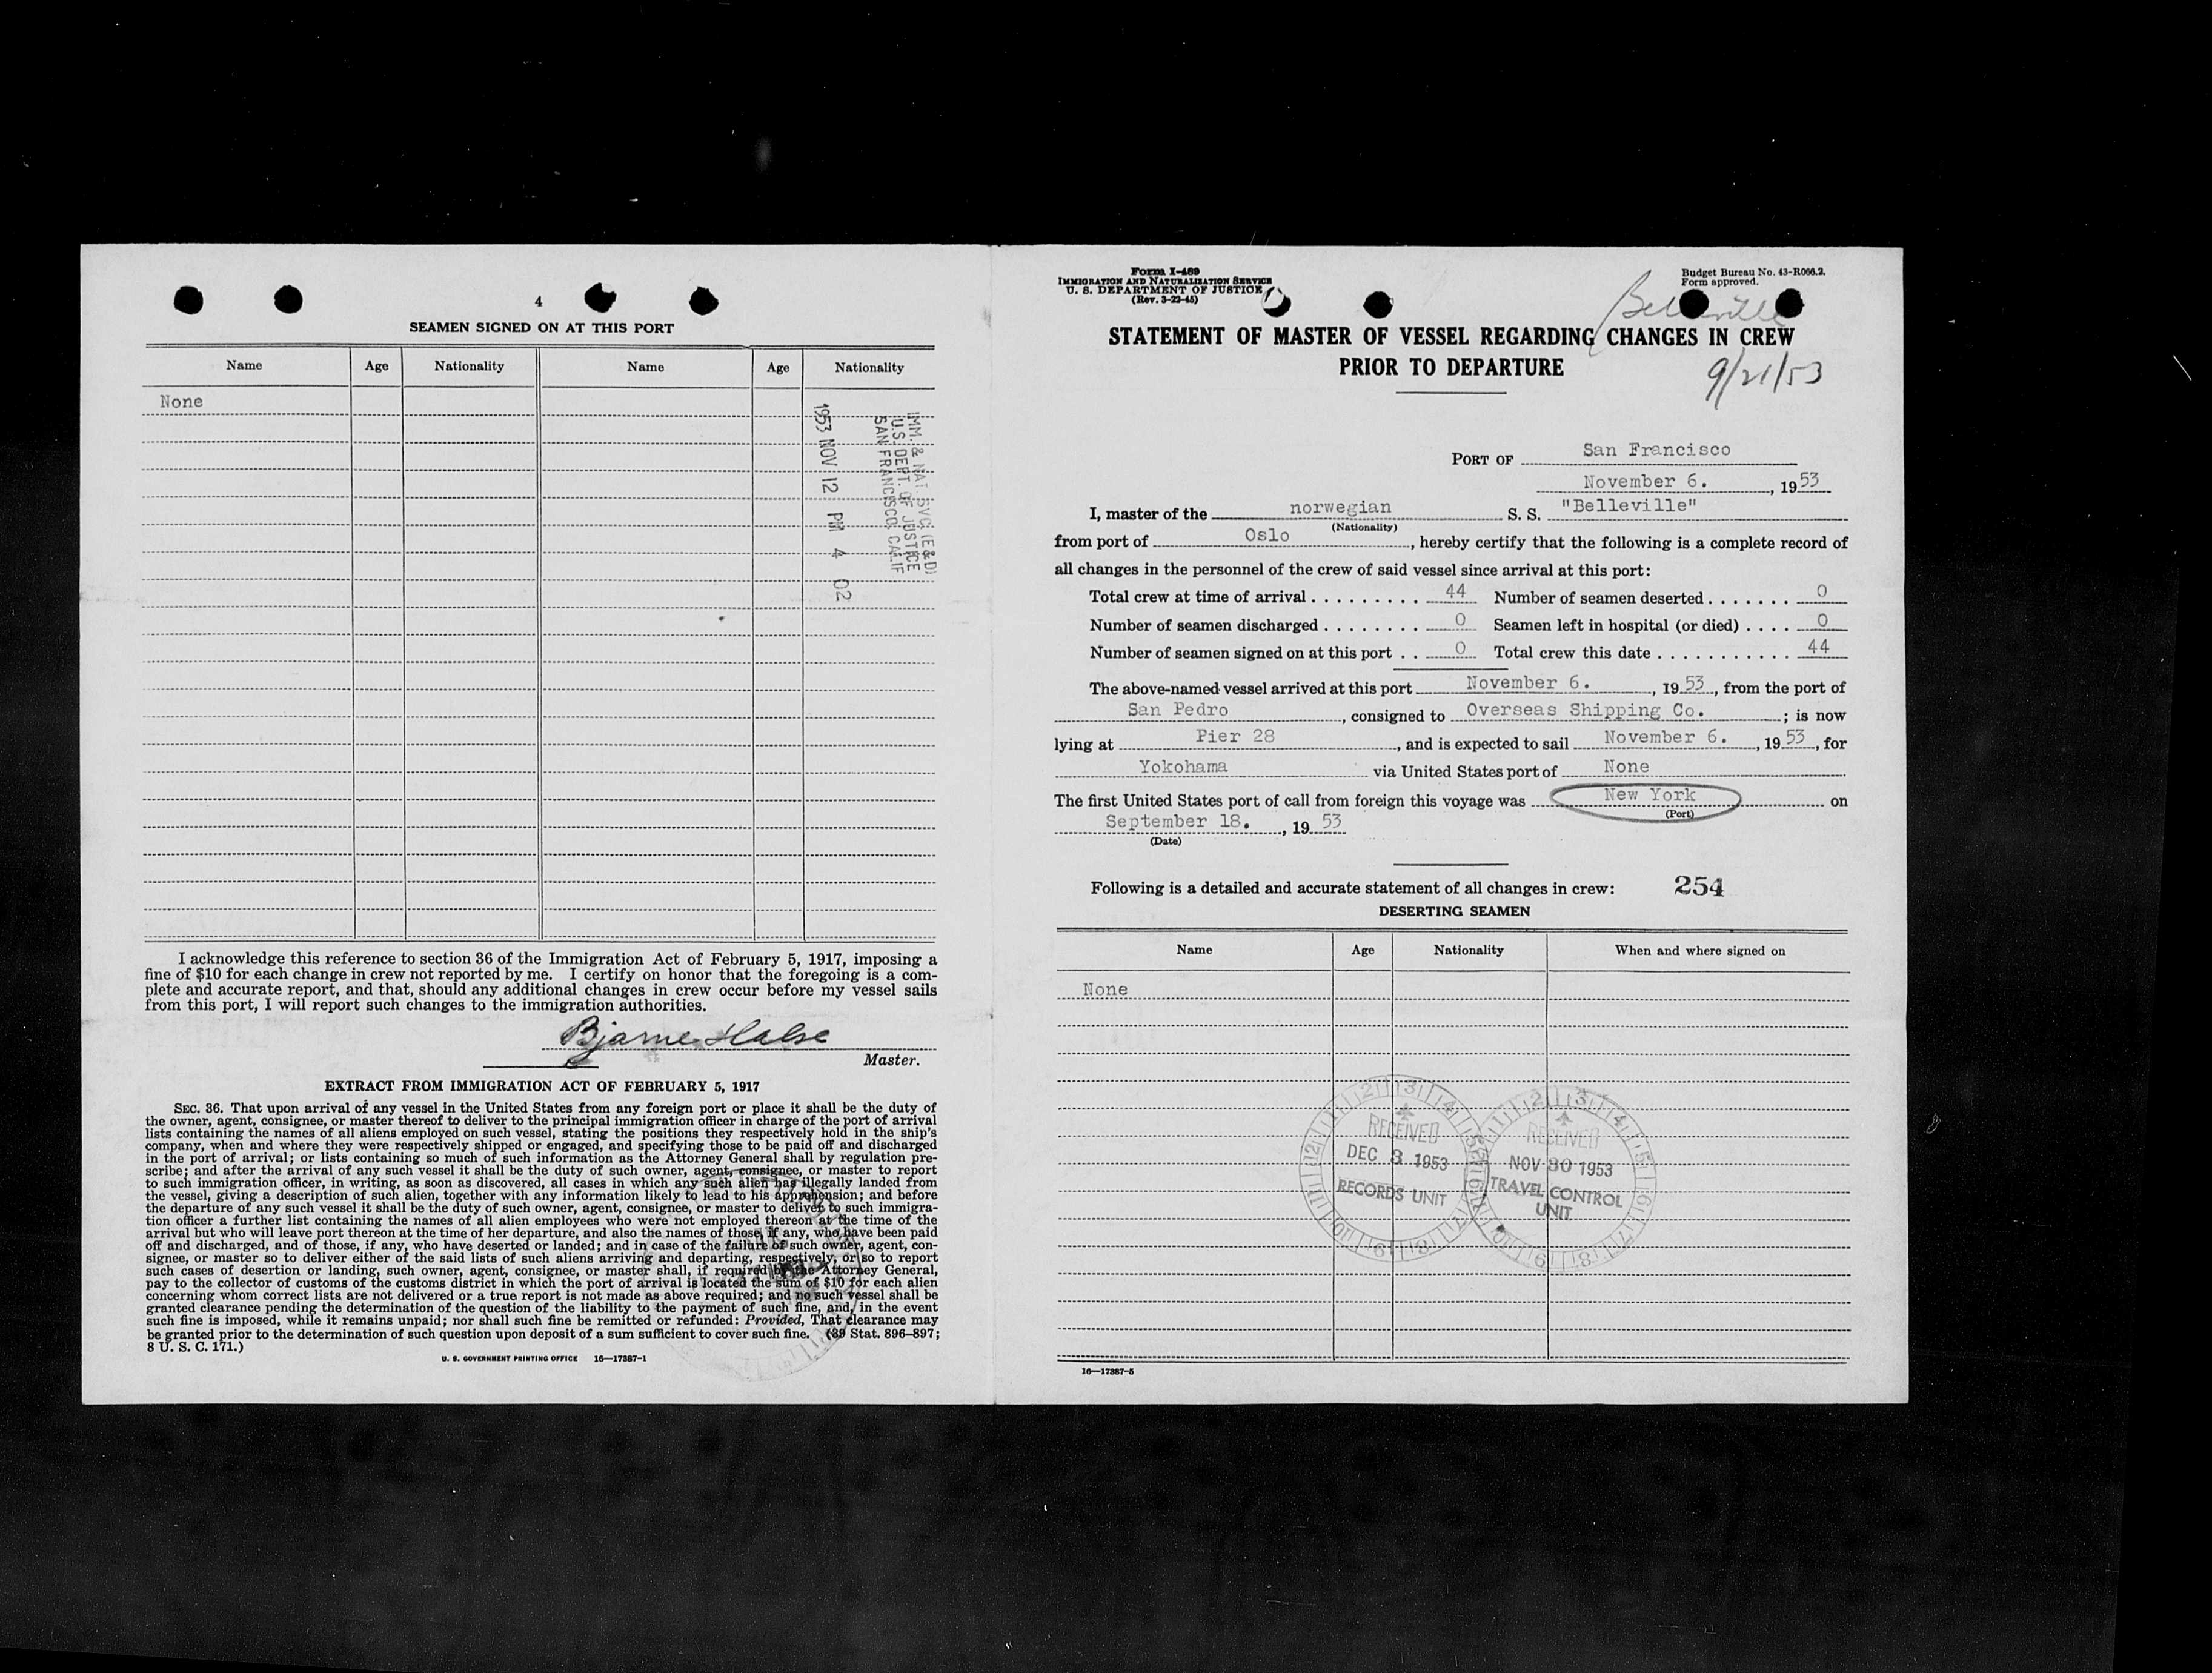 4
SEAMEN SIGNED ON AT THIS PORT
Name Age Nationality Name Age Nationality
None
IMM. & NAT. SVC. (E&D)
U.S. DEPT. OF JUSTICE
SAN FRANCISCO, CALIF
1953 NOV 12 PM 4 02
I acknowledge this reference to section 36 of the Immigration Act of February 5, 1917, imposing a
fine of $10 for each change in crew not reported by me. I certify on honor that the foregoing is a com-
plete and accurate report, and that, should any additional changes in crew occur before my vessel sails
from this port, I will report such changes to the immigration authorities.
Bjarne Halse
Master.
EXTRACT FROM IMMIGRATION ACT OF FEBRUARY 5, 1917
SEC. 36. That upon arrival of any vessel in the United States from any foreign port or place it shall be the duty of
the owner, agent, consignee, or master thereof to deliver to the principal immigration officer in charge of the port of arrival
lists containing the names of all aliens employed on such vessel, stating the positions they respectively hold in the ship's
company, when and where they were respectively shipped or engaged, and specifying those to be paid off and discharged
in the port of arrival; or lists containing so much of such information as the Attorney General shall by regulation pre-
scribe; and after the arrival of any such vessel it shall be the duty of such owner, agent, consignee, or master to report
to such immigration officer, in writing, as soon as discovered, all cases in which any such alien has illegally landed from
the vessel, giving a description of such alien, together with any information likely to lead to his apprehension; and before
the departure of any such vessel it shall be the duty of such owner, agent, consignee, or master to deliver to such immigra-
tion officer a further list containing the names of all alien employees who were not employed thereon at the time of the
arrival but who will leave port thereon at the time of her departure, and also the names of those, if any, who have been paid
off and discharged, and of those, if any, who have deserted or landed; and in case of the failure of such owner, agent, con-
signee, or master so to deliver either of the said lists of such aliens arriving and departing, respectively, or so to report
such cases of desertion or landing, such owner, agent, consignee, or master shall, if required by the Attorney General,
pay to the collector of customs of the customs district in which the port of arrival is located the sum of $10 for each alien
concerning whom correct lists are not delivered or a true report is not made as above required; and no such vessel shall be
granted clearance pending the determination of the question of the liability to the payment of such fine, and, in the event
such fine is imposed, while it remains unpaid; nor shall such fine be remitted or refunded: Provided, That clearance may
be granted prior to the determination of such question upon deposit of a sum sufficient to cover such fine. (39 Stat. 896–897;
8 U. S. C. 171.)
U. S. GOVERNMENT PRINTING OFFICE 16—17387-1
Form I-489
IMMIGRATION AND NATURALIZATION SERVICE
U. S. DEPARTMENT OF JUSTICE
(Rev. 3-22-45)
Budget Bureau No. 43-R066.2.
Form approved.
Belleville
STATEMENT OF MASTER OF VESSEL REGARDING CHANGES IN CREW
PRIOR TO DEPARTURE
9/21/53
PORT OF San Francisco
November 6. , 1953
I, master of the norwegian S. S. "Belleville"
(Nationality)
from port of Oslo , hereby certify that the following is a complete record of
all changes in the personnel of the crew of said vessel since arrival at this port:
Total crew at time of arrival . . . . . . . . . 44 Number of seamen deserted . . . . . . . 0
Number of seamen discharged . . . . . . . . 0 Seamen left in hospital (or died) . . . . 0
Number of seamen signed on at this port . . 0 Total crew this date . . . . . . . . . . . 44
The above-named vessel arrived at this port November 6. , 19 53 , from the port of
San Pedro , consigned to Overseas Shipping Co. ; is now
lying at Pier 28 , and is expected to sail November 6. , 19 53 , for
Yokohama via United States port of None
The first United States port of call from foreign this voyage was New York on
(Port)
September 18. , 19 53
(Date)
Following is a detailed and accurate statement of all changes in crew: 254
DESERTING SEAMEN
Name Age Nationality When and where signed on
None
RECEIVED
DEC 3 1953
RECORDS UNIT
RECEIVED
NOV 30 1953
TRAVEL CONTROL
UNIT
16—17387-5